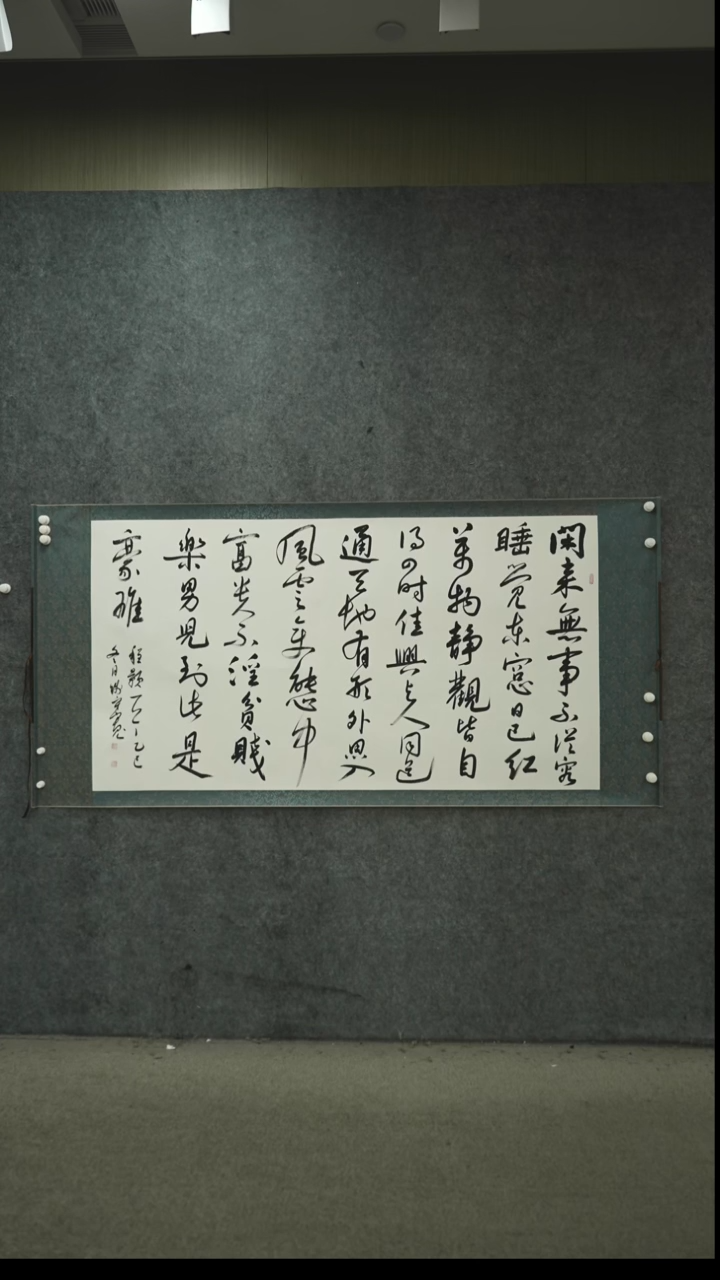 閑来無事不從容
睡覺東窓日已紅
萬物靜觀皆自
得四時佳興與人同道
通天地有形外思入
風雲變態中
富貴不淫貧賤
樂男兒到此是
豪雄
程颢 乙巳
冬月